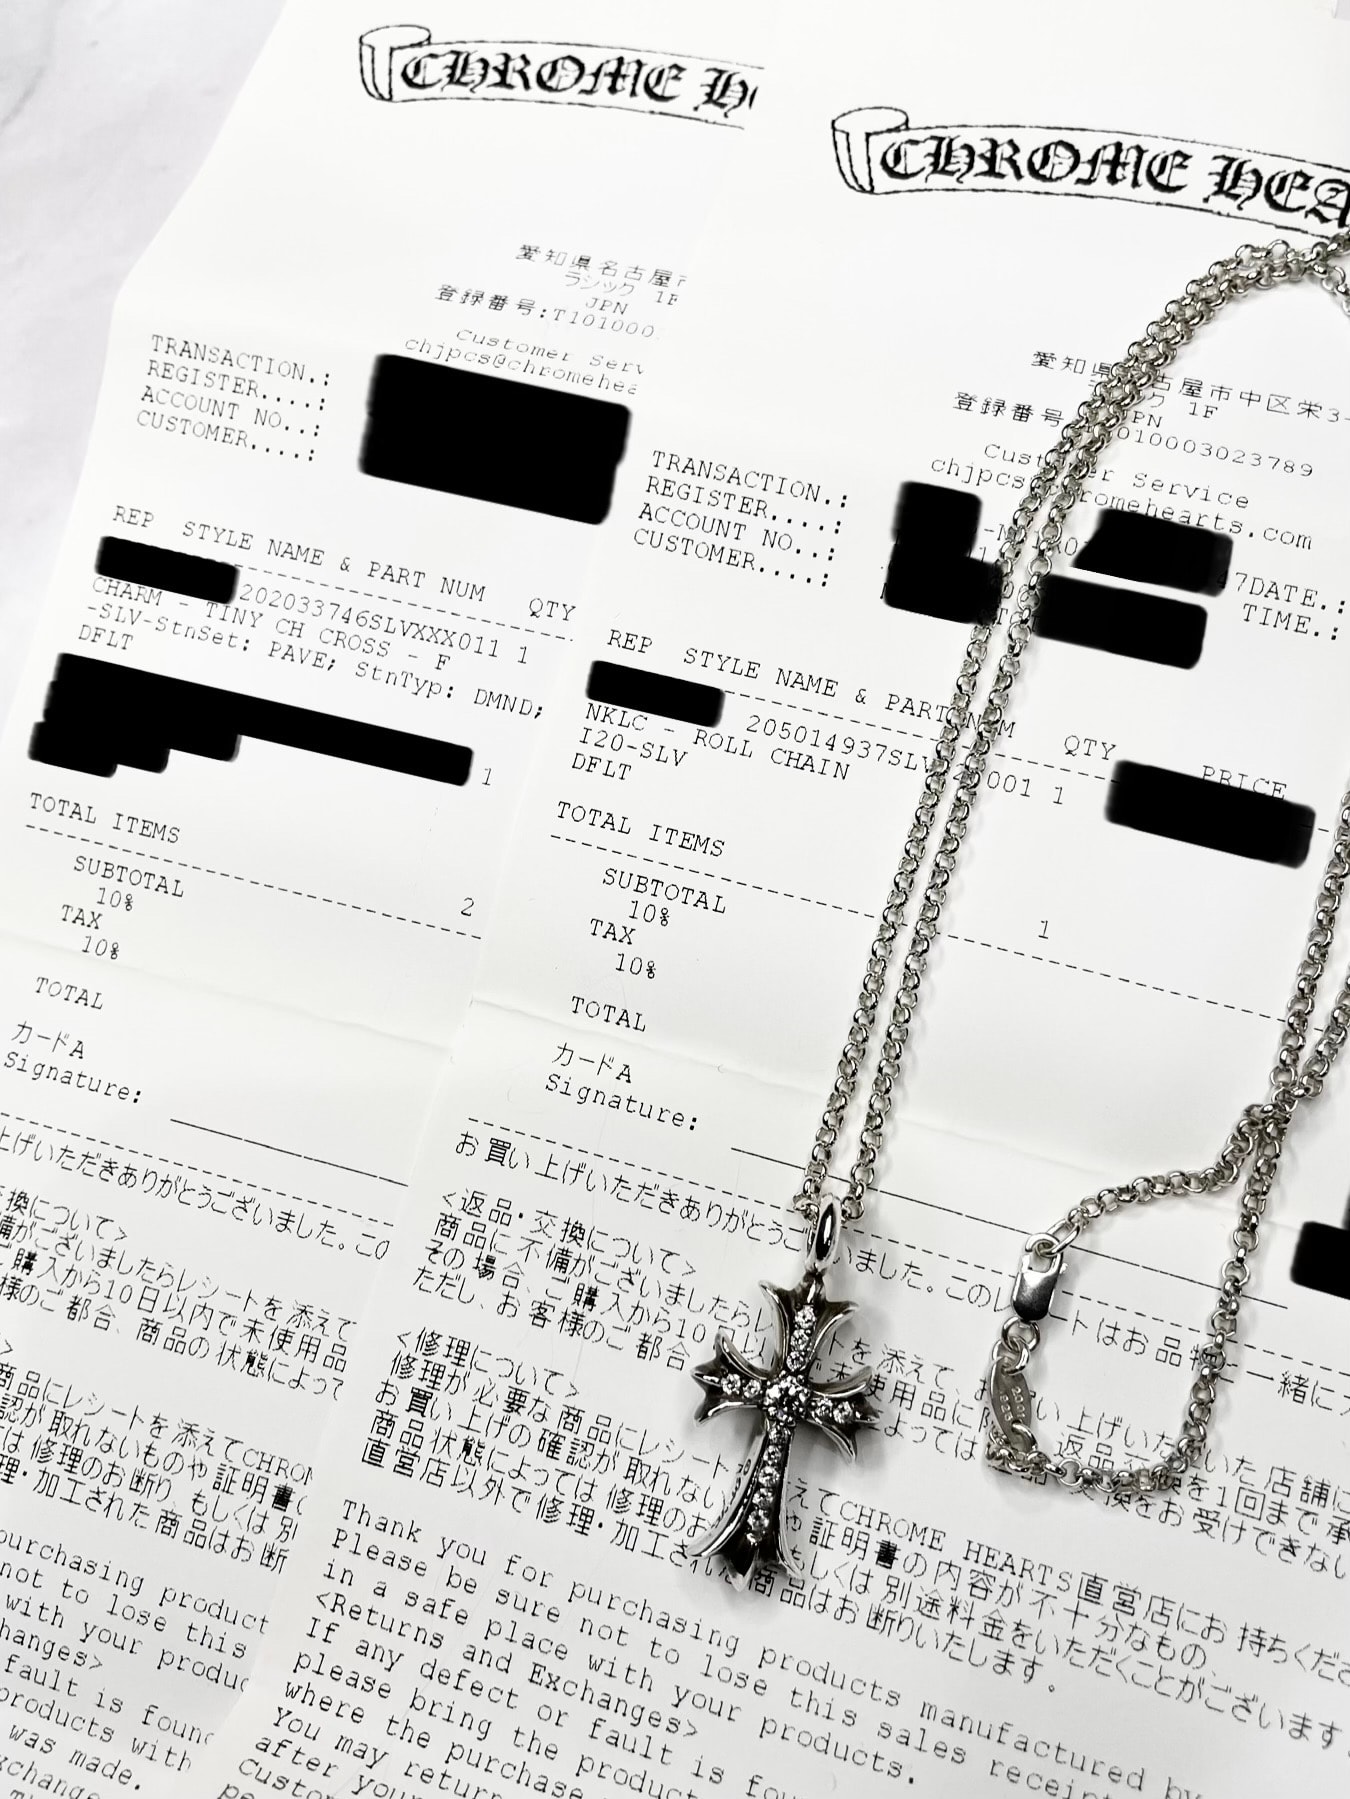 CHROME H
愛知県名古屋市
ラシック 1F
JPN
登録番号:T101000
Customer Serv
chjpcs@chromehea
TRANSACTION.:
REGISTER....:
ACCOUNT NO..:
CUSTOMER....:
REP STYLE NAME & PART NUM QTY
202033746SLVXXX011 1
CHARM - TINY CH CROSS - F
-SLV-StnSet: PAVE; StnTyp: DMND;
DFLT
1
TOTAL ITEMS 2
SUBTOTAL
10%
TAX
10%
TOTAL
カードA
Signature:
上げいただきありがとうございました。この
換について>
備がございましたらレシートを添えて
ご購入から10日以内で未使用品
様のご都合、商品の状態によって
>
商品にレシートを添えてCHROM
認が取れないものや証明書
は修理のお断り、もしくは別
理・加工された商品はお断
purchasing product
not to lose this
with your produc
hanges>
fault is foun
products with
was made.
xchange
CHROME HEA
愛知県 古屋市中区栄3-
ック 1F
PN
登録番号 010003023789
Customer Service
chjpcs@chromehearts.com
TRANSACTION.:
REGISTER....: 47DATE.:
ACCOUNT NO..: TIME.:
CUSTOMER....:
REP STYLE NAME & PART NUM QTY PRICE
205014937SLV 20001 1
NKLC - ROLL CHAIN
I20-SLV
DFLT
TOTAL ITEMS 1
SUBTOTAL
10%
TAX
10%
TOTAL
カードA
Signature:
お買い上げいただきありがとうございました。このレシートはお品物と一緒に
<返品・交換について>
商品に不備がございましたらレシートを添えて、お買い上げいただいた店舗に
その場合、ご購入から10日以内で未使用品に限り返品・交換を1回まで承
ただし、お客様のご都合 によっては 品 交換をお受けできない
<修理について>
修理が必要な商品にレシート 添えてCHROME HEARTS直営店にお持ちくださ
お買い上げの確認が取れない や証明書の内容が不十分なもの、
商品状態によっては修理のお もしくは別途料金をいただくことがございます。
直営店以外で修理・加工された商品はお断りいたします。
Thank you for purchasing products manufactured by
Please be sure not to lose this sales receip
in a safe place with your products.
<Returns and Exchanges>
If any defect or fault is fou
please bring the produc
where the purchase
You may return
after your
Custo
pe